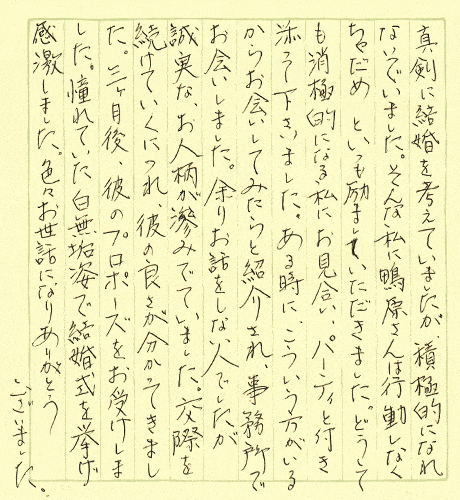 真剣に結婚を考えていましたが、積極的になれ
ないでいました。そんな私に鴨原さんは行動しなく
ちゃだめ といつも励ましていただきました。どうして
も消極的になる私にお見合い、パーティと付き
添って下さいました。ある時に、こういう方がいる
からお会いしてみたらと紹介され、事務所で
お会いしました。余りお話をしない人でしたが
誠実な、お人柄が滲みでていました。交際を
続けていくにつれ、彼の良さが分かってきまし
た。三ヶ月後、彼のプロポーズをお受けしま
した。憧れていた白無垢姿で結婚式を挙げ
感激しました。色々お世話になりありがとう
ございました。